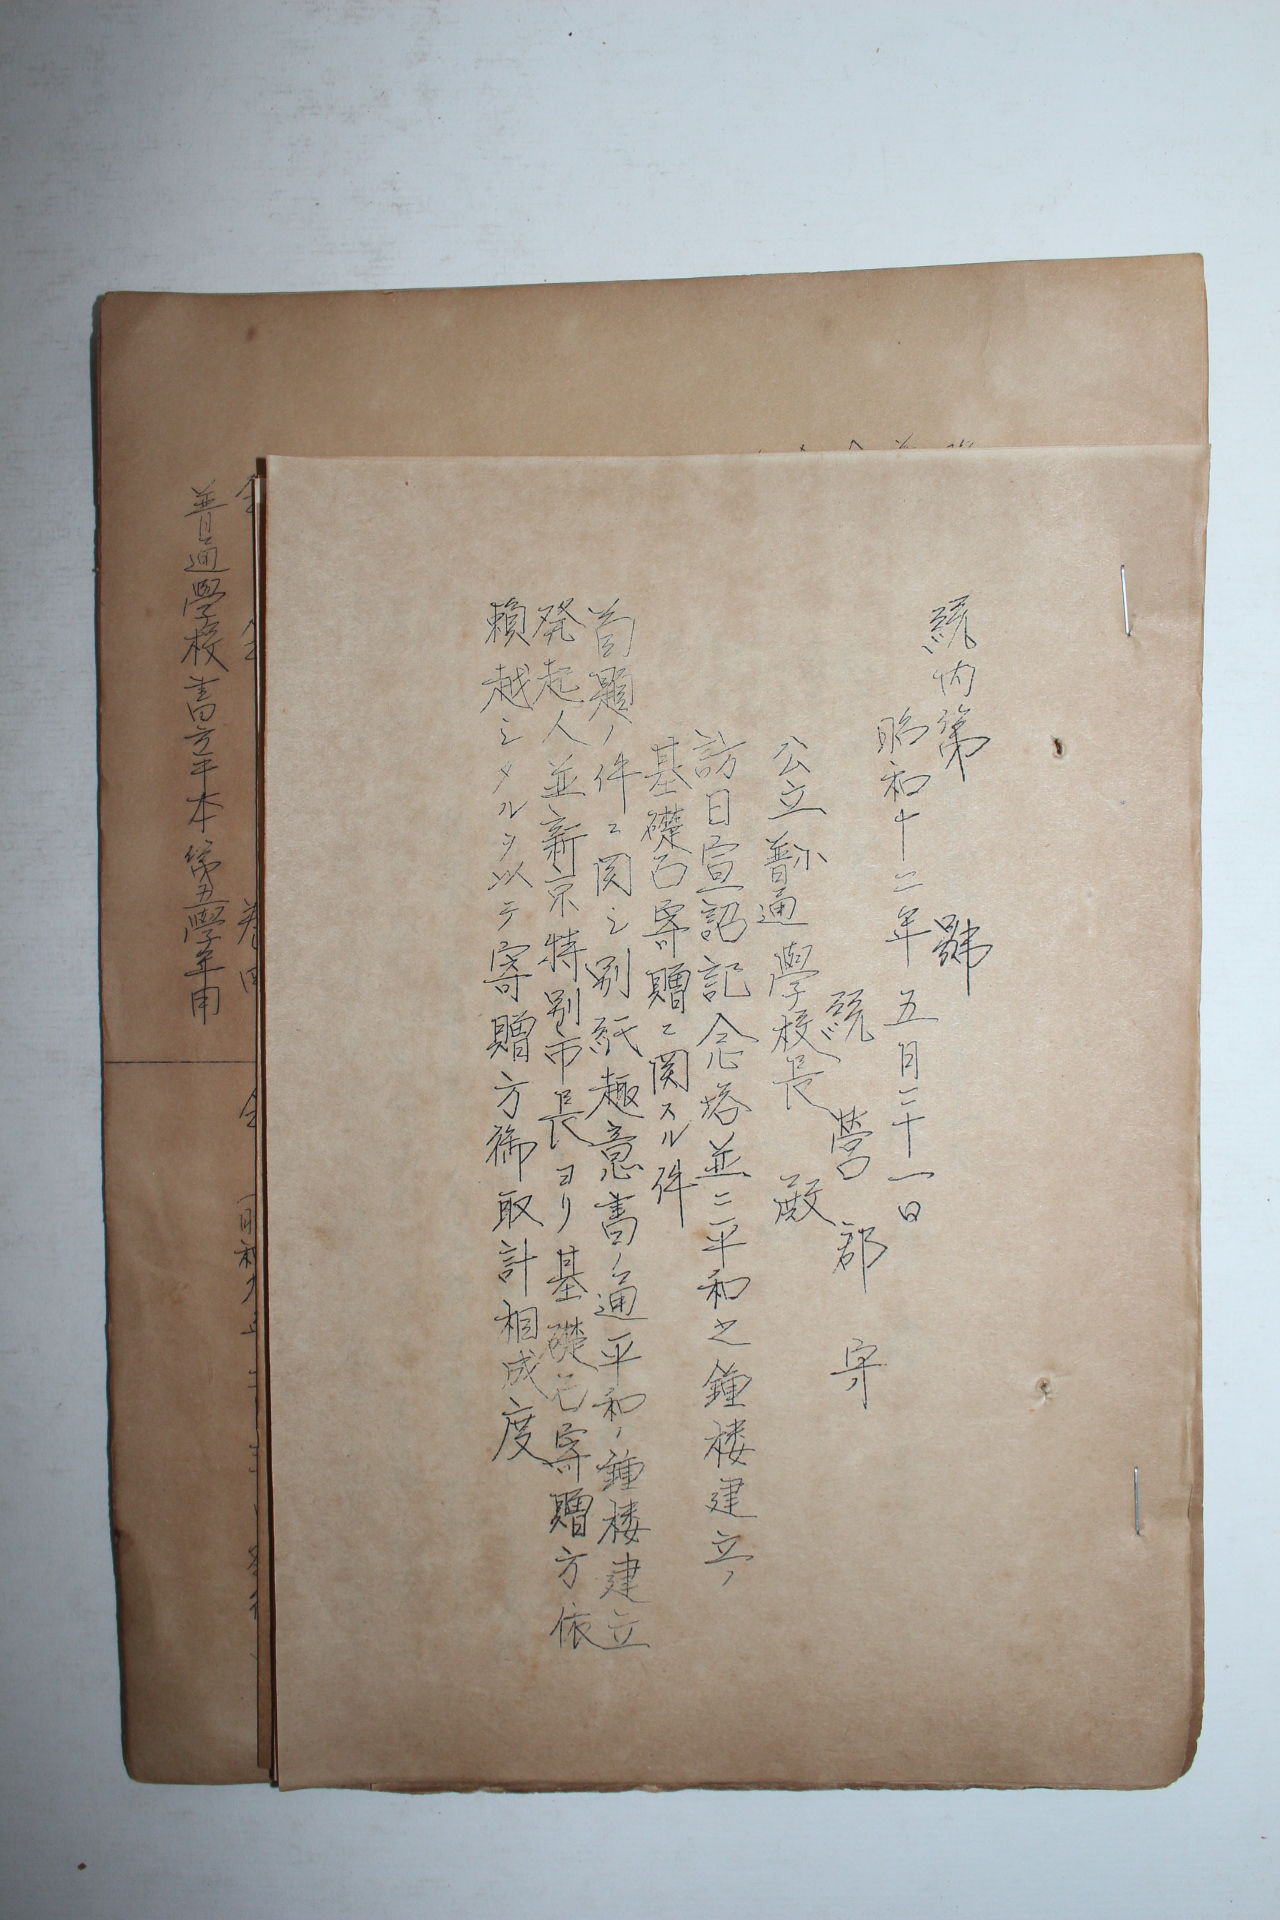 統内第　　號
昭和十二年五月二十一日
統營郡守
公立普通學校長殿
訪日宣詔記念塔並ニ平和之鐘楼建立ノ
基礎石寄贈ニ関スル件
首題ノ件ニ関シ別紙趣意書ノ通平和ノ鐘楼建立
発起人並新京特別市長ヨリ基礎石寄贈方依
頼越シタルヲ以テ寄贈方御取計相成度
普通學校書方手本第五學年用